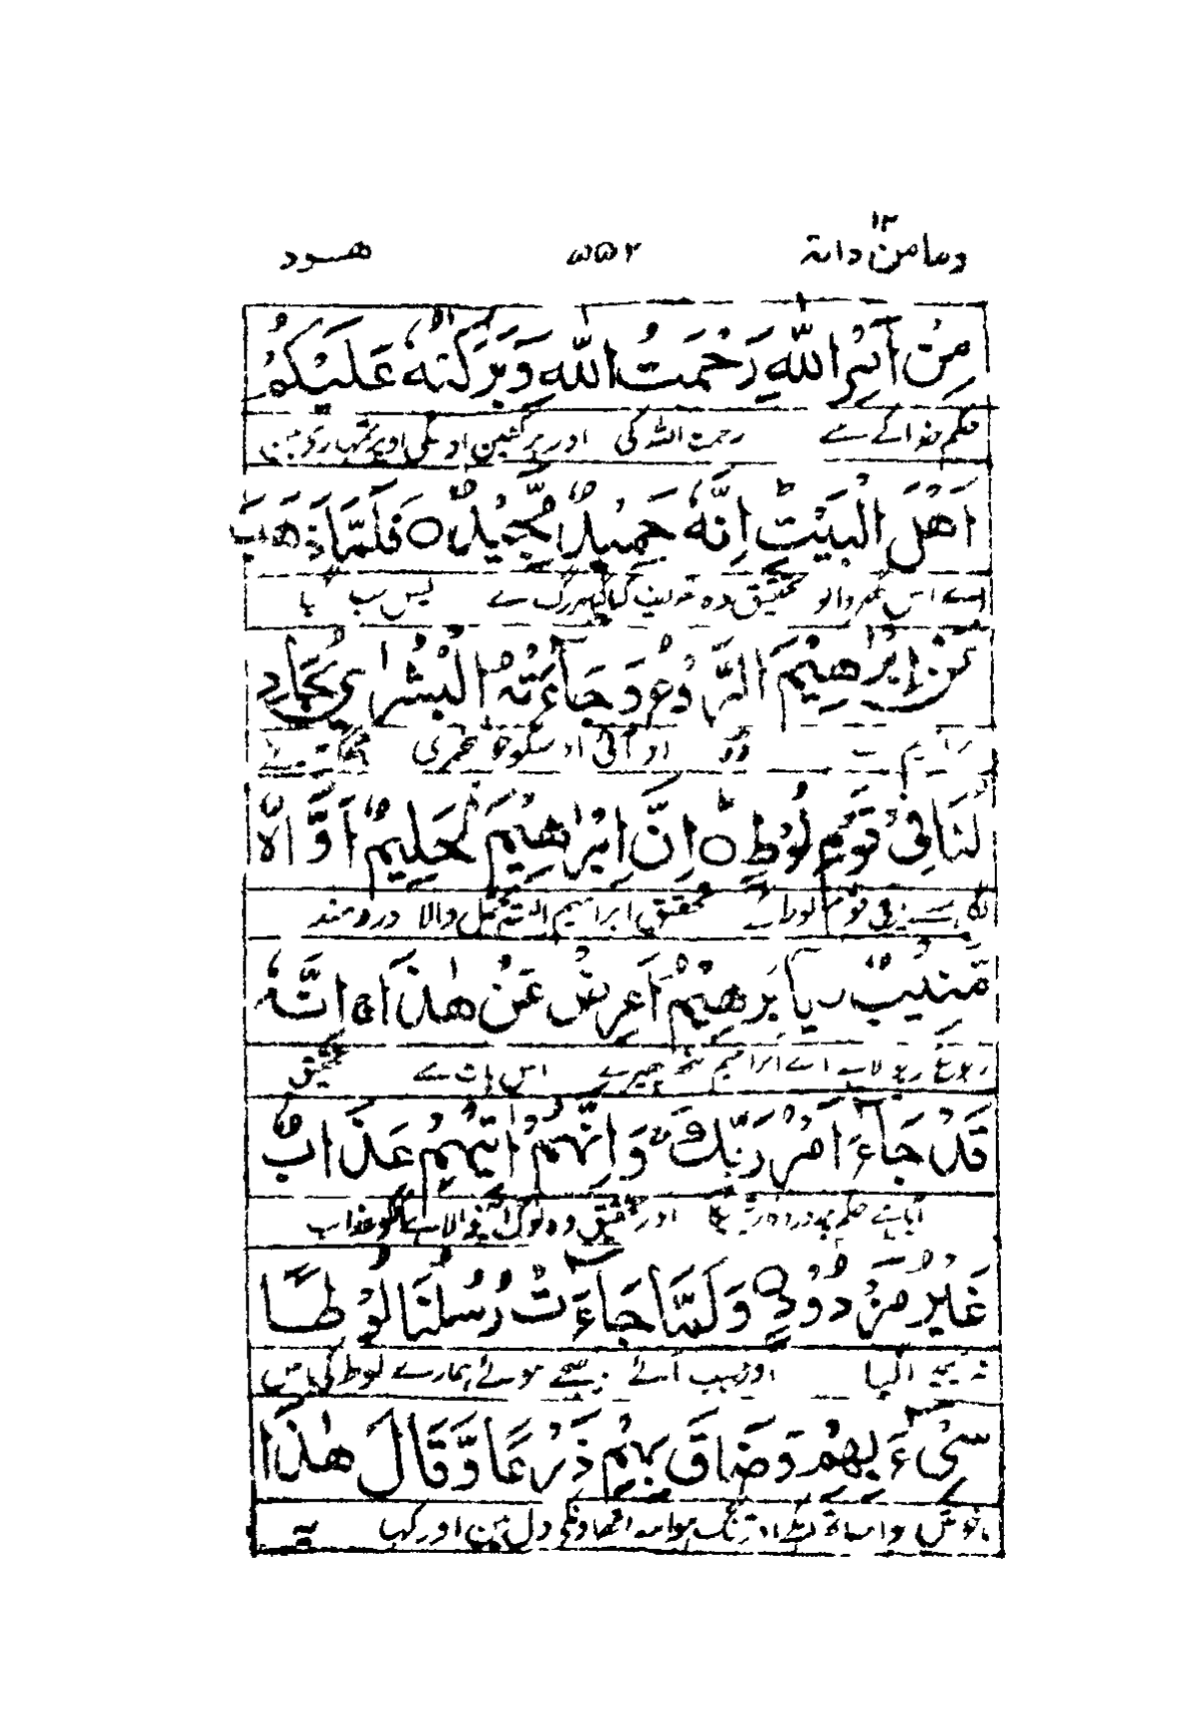 وما من دابة ١٢ ۵۵۲ هود
مِنْ اَمْرِ اللّٰهِ رَحْمَتُ اللّٰهِ وَبَرَكٰتُهٗ عَلَيْكُمْ
حکم خدا کے سے رحمت اللہ کی اور برکتین اوسکی اوپر تمہارے ہین
اَهْلَ الْبَيْتِ ط اِنَّهٗ حَمِيْدٌ مَّجِيْدٌ ○ فَلَمَّا ذَهَبَ
اے اس گھر والو تحقیق وہ تعریف کیا بزرگ ہے پس جب گیا
عَنْ اِبْرٰهِيْمَ الرَّوْعُ وَجَآءَتْهُ الْبُشْرٰى يُجَادِ
ابراہیم سے ڈر اور آئی اوسکو خوشخبری
لُنَا فِىْ قَوْمِ لُوْطٍ ○ اِنَّ اِبْرٰهِيْمَ لَحَلِيْمٌ اَوَّاهٌ
قوم لوط کے تحقیق ابراہیم البتہ تحمل والا دردمند
مُّنِيْبٌ يٰٓاِبْرٰهِيْمُ اَعْرِضْ عَنْ هٰذَا ج اِنَّهٗ
رجوع اے ابراہیم منہ پھیر لے اس بات سے تحقیق
قَدْ جَآءَ اَمْرُ رَبِّكَ ج وَاِنَّهُمْ اٰتِيْهِمْ عَذَابٌ
آیا ہے حکم پروردگار تیرے کا اور تحقیق وہ لوگ آنیوالا ہے اونکو عذاب
غَيْرُ مَرْدُوْدٍ ○ وَلَمَّا جَآءَتْ رُسُلُنَا لُوْطًا
نہ پھیرا گیا اور جب آئے بھیجے ہوئے ہمارے لوط کی پاس
سِىْٓءَ بِهِمْ وَضَاقَ بِهِمْ ذَرْعًا وَّقَالَ هٰذَا
ناخوش ہوا ساتھ اونکے اور تنگ ہوا ساتھ اونکی دل مین اور کہا یہ